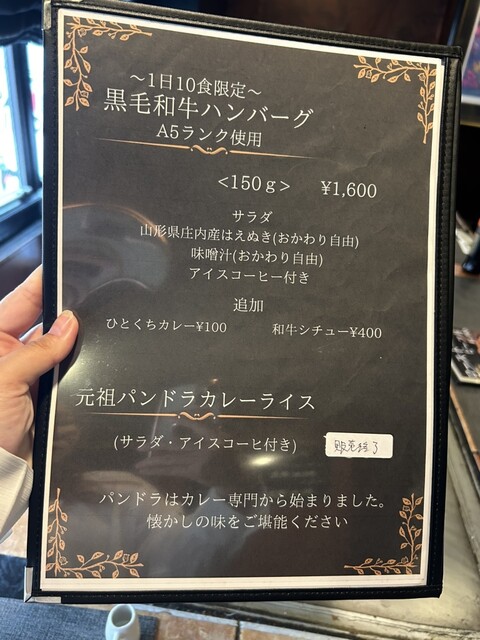 ～1日10食限定～
黒毛和牛ハンバーグ
A5ランク使用
<150g> ¥1,600
サラダ
山形県庄内産はえぬき(おかわり自由)
味噌汁(おかわり自由)
アイスコーヒー付き
追加
ひとくちカレー¥100 和牛シチュー¥400
元祖パンドラカレーライス
(サラダ・アイスコーヒ付き) 販売終了
パンドラはカレー専門から始まりました。
懐かしの味をご堪能ください